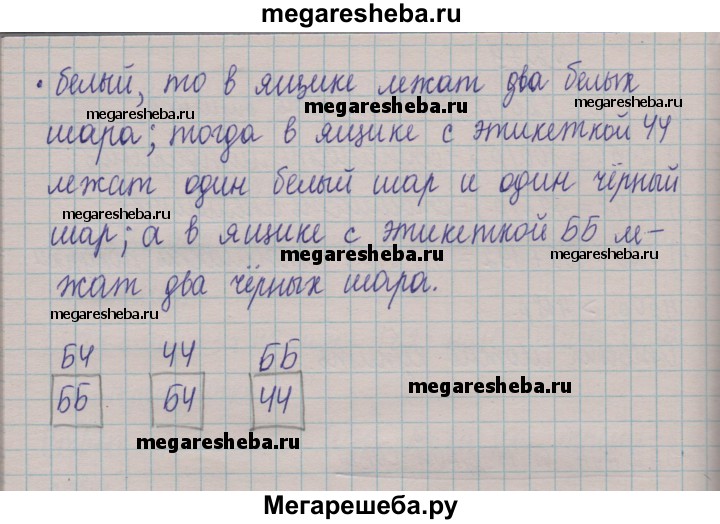 megaresheba.ru
• белый, то в ящике лежат два белых
megaresheba.ru
megaresheba.ru
megaresheba.ru
шара; тогда в ящике с этикеткой ЧЧ
лежат один белый шар и один чёрный
megaresheba.ru
шар; а в ящике с этикеткой ББ ле-
megaresheba.ru
жат два чёрных шара.
megaresheba.ru
БЧ ЧЧ ББ
ББ БЧ ЧЧ
megaresheba.ru
megaresheba.ru
Мегарешеба.ру